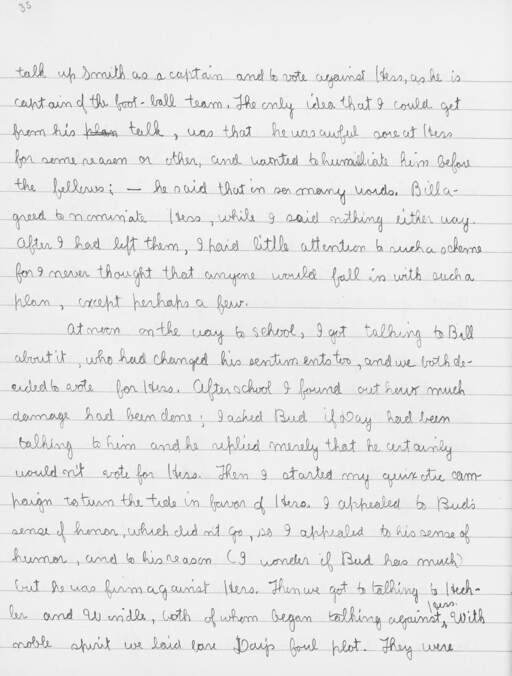 35
talk up Smith as a captain and to vote against Hess, as he is
captain of the foot-ball team. The only idea that I could get
from his plan talk, was that he was awful sore at Hess
for some reason or other, and wanted to humiliate him before
the fellows; — he said that in so many words. Bill a-
greed to nominate Hess, while I said nothing either way.
After I had left them, I paid little attention to such a scheme
for I never thought that anyone would fall in with such a
plan, except perhaps a few.
At noon on the way to school, I got talking to Bill
about it, who had changed his sentiments too, and we both de-
cided to vote for Hess. After school I found out how much
damage had been done; I asked Bud if Day had been
talking to him and he replied merely that he certainly
wouldn't vote for Hess. Then I started my quixotic cam-
paign to turn the tide in favor of Hess. I appealed to Bud's
sense of honor, which didn't go, so I appealed to his sense of
humor, and to his reason (I wonder if Bud has much)
but he was firm against Hess. Then we got to talking to Hech-
ler and Windle, both of whom began talking against Hess. With
noble spirit we laid bare Day's foul plot. They were